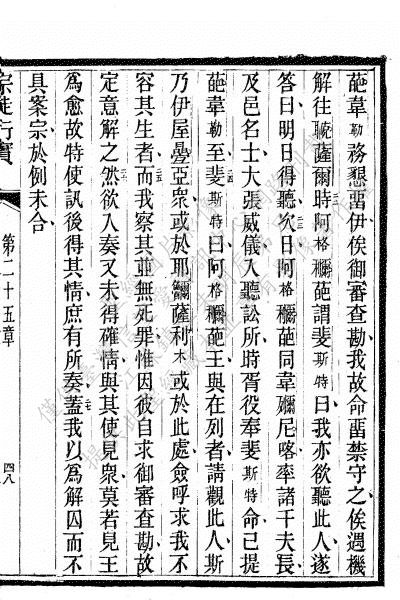 葩韋勒務懇畱伊俟御審查勘我故命畱禁守之俟遇機
解往聣薩爾時阿格𥻗葩謂斐斯特曰我亦欲聽此人遂
答曰明日得聽次日阿格𥻗葩同韋𥻗尼喀率諸千夫長
及邑名士大張威儀入聽訟所時胥役奉斐斯特命己提
葩韋勒至斐斯特曰阿格𥻗葩王與在列者請觀此人斯
乃伊屋疊亞衆或於耶𥻗薩利木或於此處僉呼求我不
容其生者而我察其並無死罪惟因彼自求御審查勘故
定意解之然欲入奏又未得確情與其使見衆莫若見王
爲愈故特使訊後得其情庶有所奏蓋我以爲解囚而不
具案宗於例未合
宗徒行實
第二十五章
四八